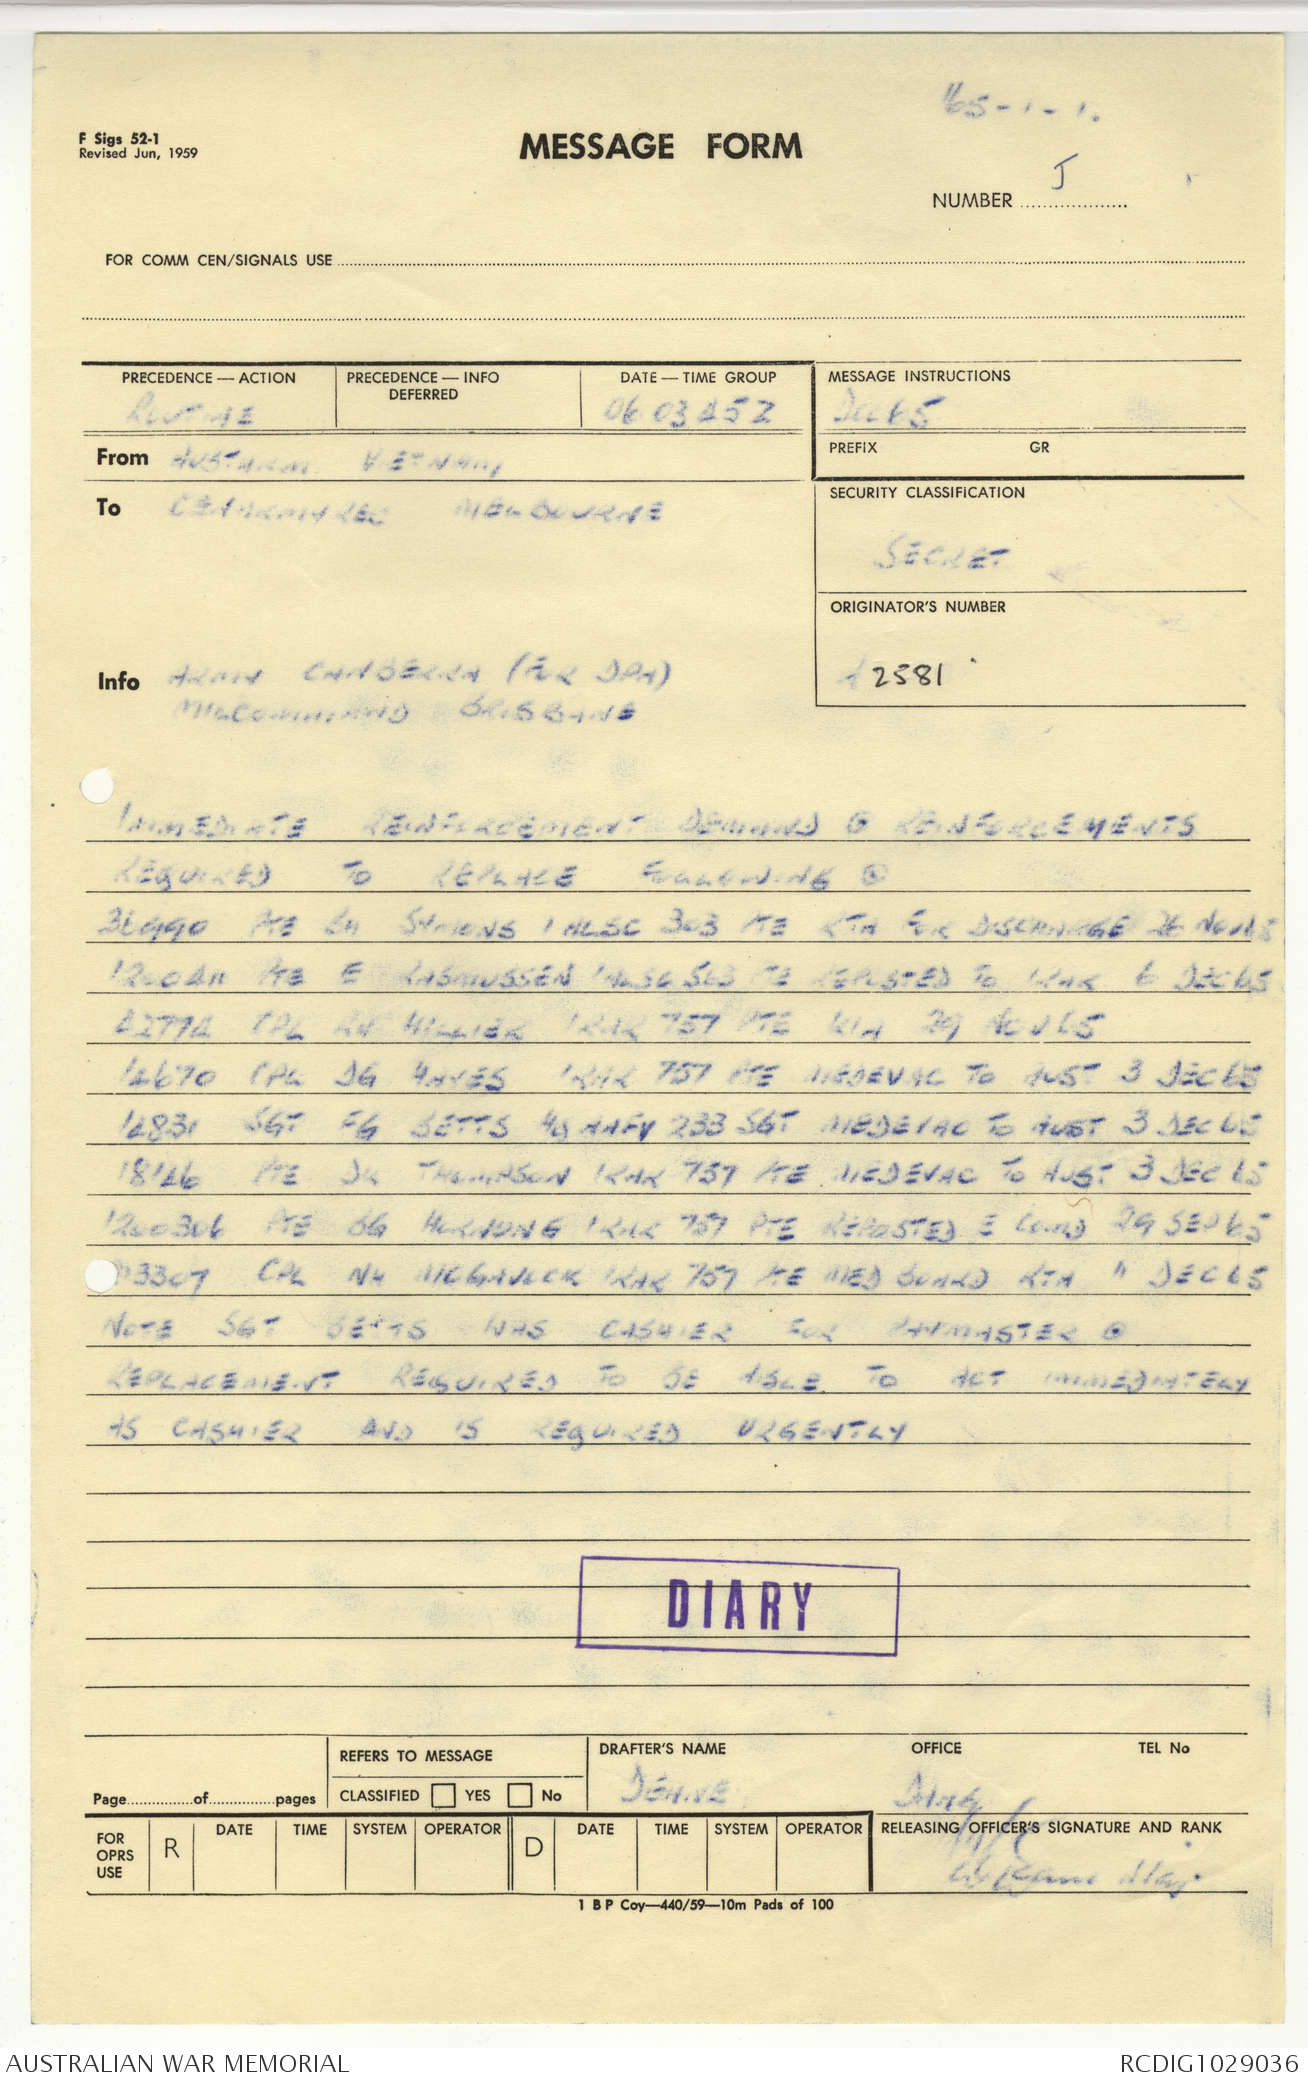 165-1-1.
F Sigs 52-1
Revised Jun, 1959
MESSAGE FORM
NUMBER ................... J
FOR COMM CEN/SIGNALS USE
PRECEDENCE — ACTION
ROUTINE
PRECEDENCE — INFO
DEFERRED
DATE — TIME GROUP
060345Z
MESSAGE INSTRUCTIONS
DEC 65
PREFIX GR
From AUSTARM VIETNAM
To CENARMYREC MELBOURNE
SECURITY CLASSIFICATION
SECRET
ORIGINATOR'S NUMBER
A 2581
Info ARMY CANBERRA (FOR DPA)
MILCOMMAND BRISBANE
IMMEDIATE REINFORCEMENT DEMAND ⊙ REINFORCEMENTS
REQUIRED TO REPLACE FOLLOWING ⊙
36990 PTE SYMONS 1 ALSC 303 PTE RTA FOR DISCHARGE 26 NOV 65
PTE E RASMUSSEN 1 ALSC 563 PTE REPOSTED TO 1RAR 6 DEC 65
CPL HILLIER 1RAR 757 PTE KIA 29 NOV 65
14670 CPL DG HAYES 1RAR 757 PTE MEDEVAC TO AUST 3 DEC 65
14831 SGT FG BETTS HQ AAFV 233 SGT MEDEVAC TO AUST 3 DEC 65
18146 PTE THOMPSON 1RAR 757 PTE MEDEVAC TO AUST 3 DEC 65
1200306 PTE BG HORNUNG 1RAR 757 PTE REPOSTED E COMD 29 SEP 65
CPL MCGAVOCK 1RAR 757 PTE MED BOARD RTA DEC 65
NOTE SGT BETTS WAS CASHIER FOR PAYMASTER ⊙
REPLACEMENT REQUIRED TO BE ABLE TO ACT IMMEDIATELY
AS CASHIER AND IS REQUIRED URGENTLY
DIARY
Page...............of...............pages
REFERS TO MESSAGE
CLASSIFIED YES No
DRAFTER'S NAME OFFICE TEL No
DEHNE DAAG
FOR OPRS USE R DATE TIME SYSTEM OPERATOR D DATE TIME SYSTEM OPERATOR
RELEASING OFFICER'S SIGNATURE AND RANK
Maj
1 B P Coy—440/59—10m Pads of 100
AUSTRALIAN WAR MEMORIAL RCDIG1029036